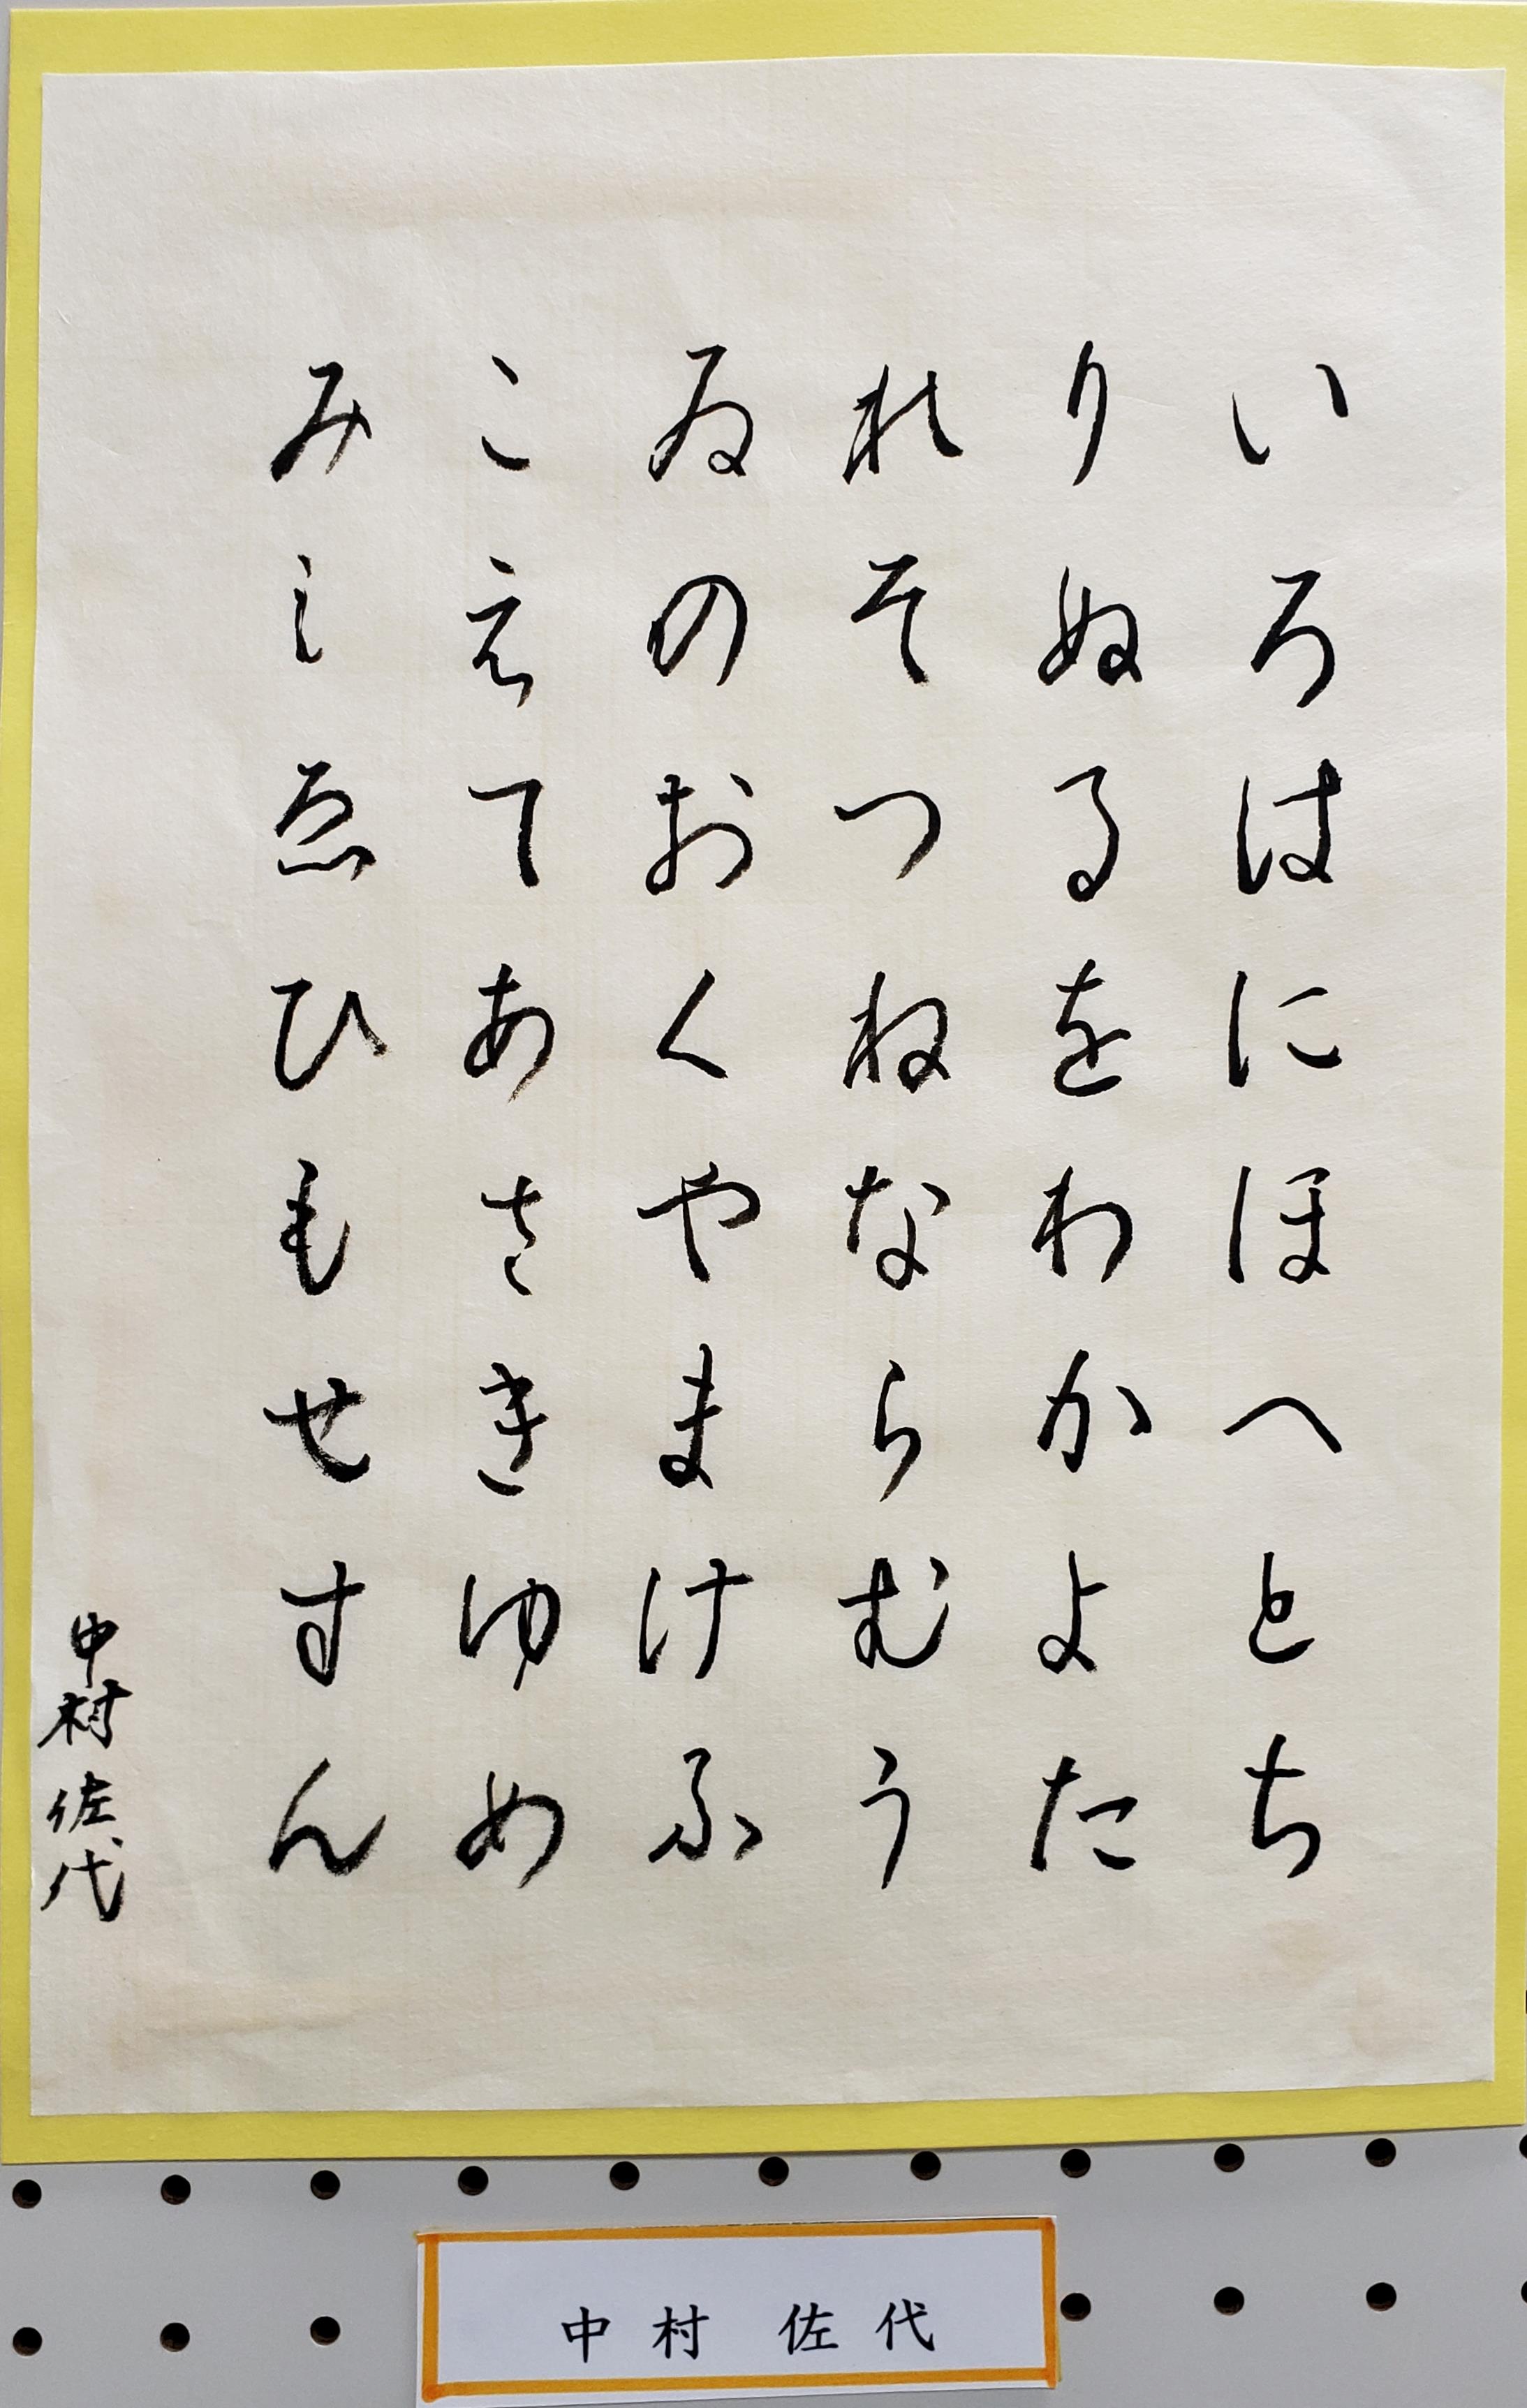 いろはにほへとち
りぬるをわかよた
れそつねならむう
ゐのおくやまけふ
こえてあさきゆめ
みしゑひもせすん
中村佐代
中村 佐代